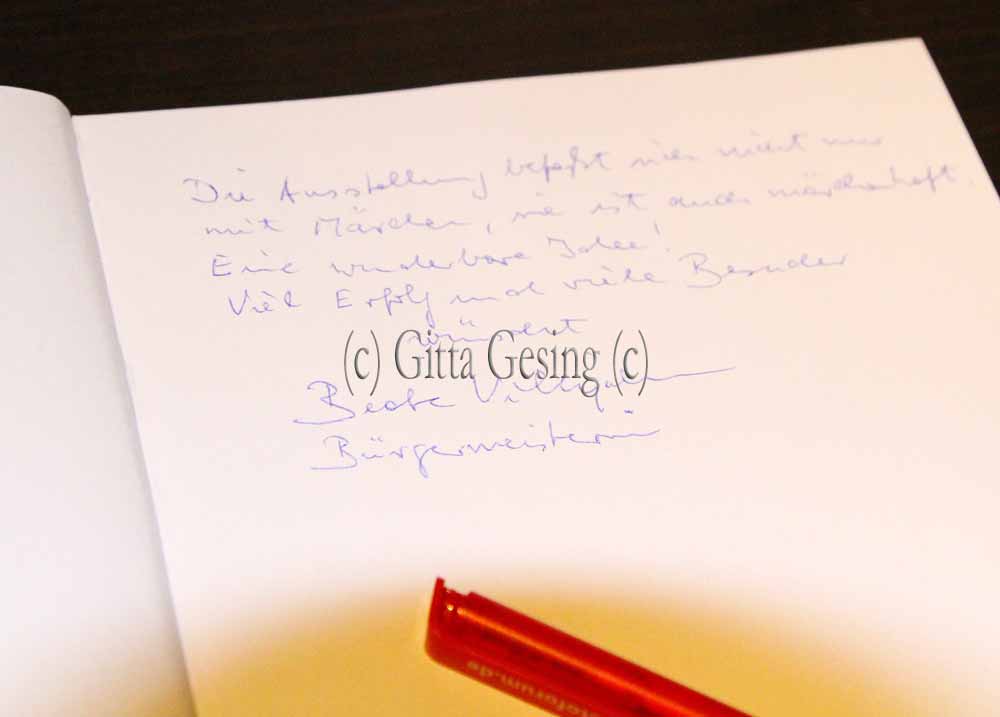 Die Ausstellung befaßt sich nicht nur
mit Märchen, sie ist auch märchenhaft.
Eine wunderbare Idee!
Viel Erfolg und viele Besucher
wünscht
(c) Gitta Gesing (c)
Beate
Bürgermeisterin
toforum.de